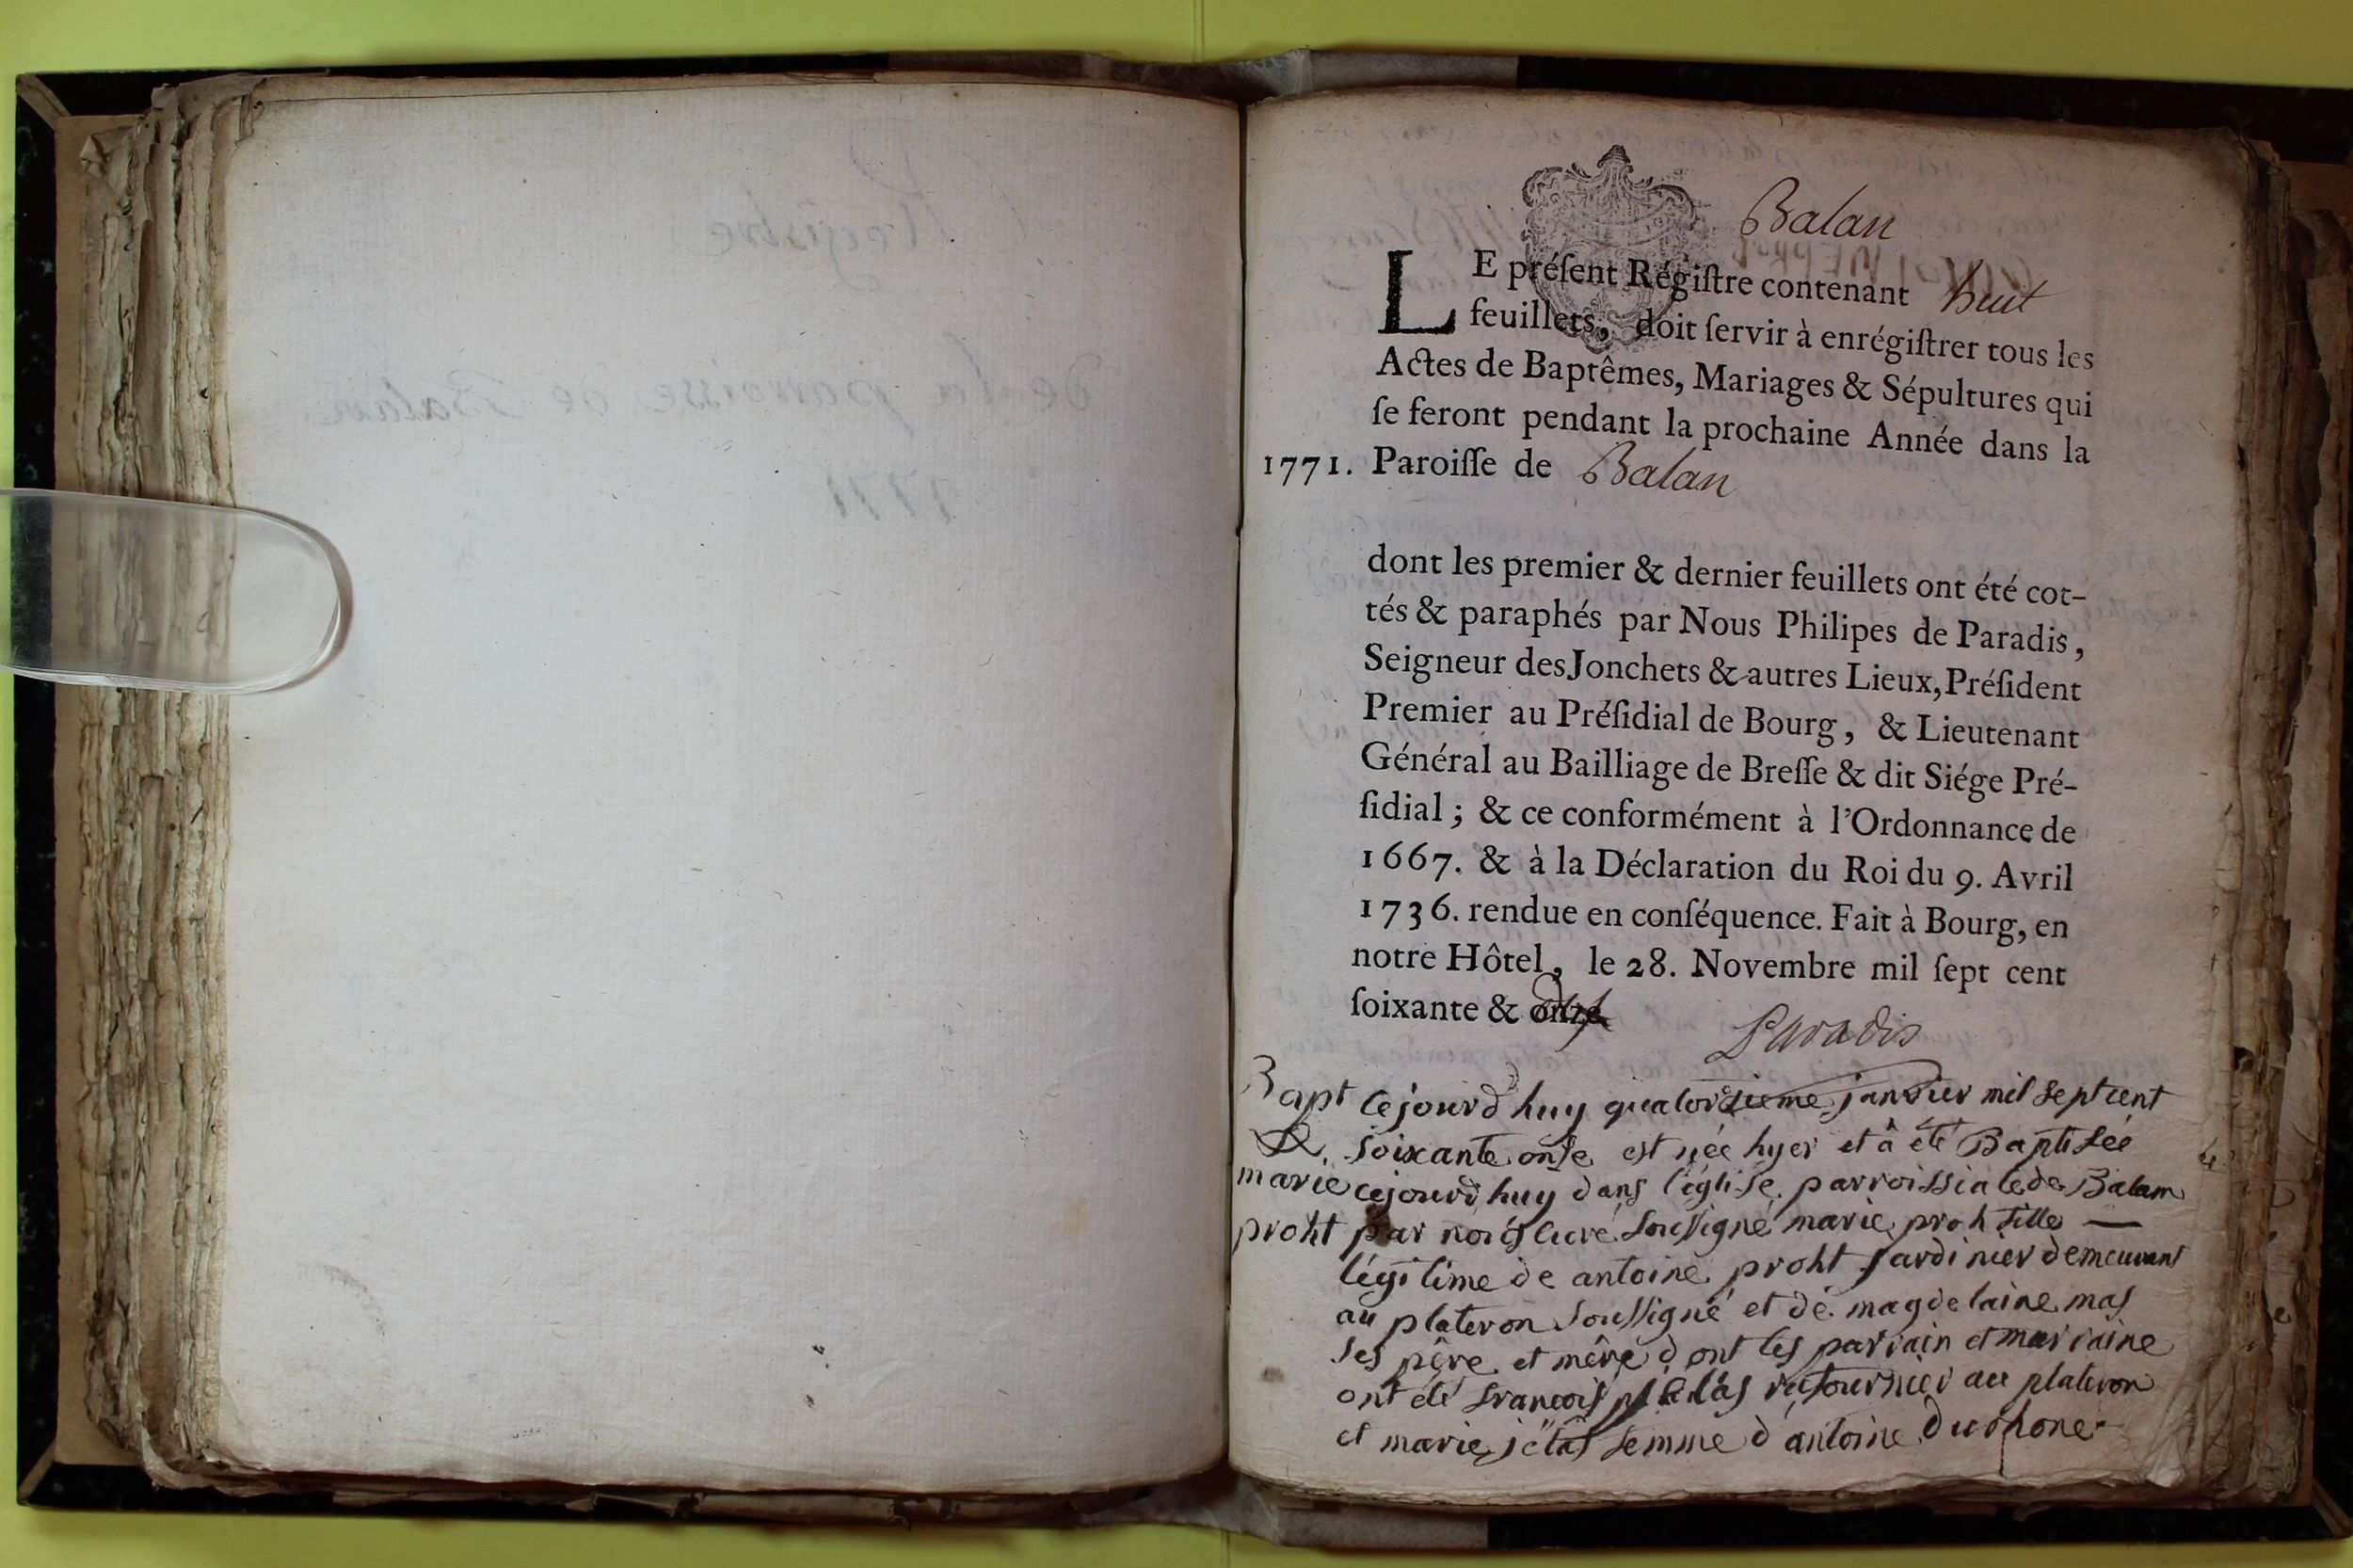 Registre
de la parroisse de Balan
1771
Balan
LE préſent Régiſtre contenant huit
feuillets, doit ſervir à enrégiſtrer tous les
Actes de Baptêmes, Mariages & Sépultures qui
ſe feront pendant la prochaine Année dans la
1771. Paroiſſe de Balan
dont les premier & dernier feuillets ont été cot-
tés & paraphés par Nous Philipes de Paradis,
Seigneur des Jonchets & autres Lieux, Préſident
Premier au Préſidial de Bourg, & Lieutenant
Général au Bailliage de Breſſe & dit Siége Pré-
ſidial; & ce conformément à l'Ordonnance de
1667. & à la Déclaration du Roi du 9. Avril
1736. rendue en conſéquence. Fait à Bourg, en
notre Hôtel, le 28. Novembre mil ſept cent
ſoixante & onze
Paradis
Bapt cejourd huy quatorzieme janvier mil sept cent
De soixante onse est née hyer et â été Baptisée
marie cejourd huy dans l'église parroissiale de Balam
proht par nous curé soussigné marie proht fille —
légitime de antoine proht jardinier demeurant
au plateron soussigné et de magdelaine mas
ses pêre et mêre dont les parrain et marraine
ont été françois au plateron
et marie femme d'antoine du rhone